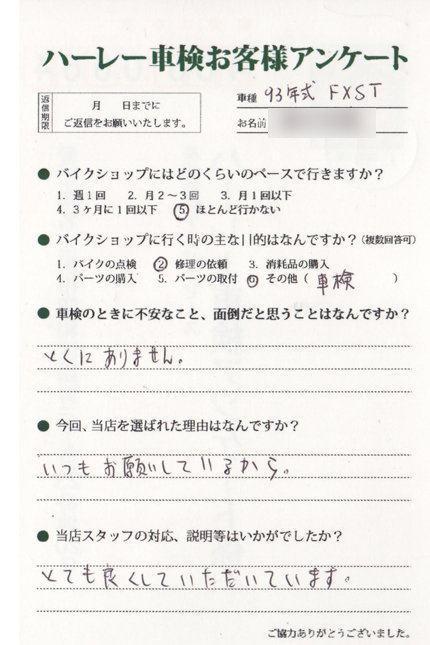 ハーレー車検お客様アンケート
返信期限
月　日までに
ご返信をお願いいたします。
車種 93年式 FXST
お名前
● バイクショップにはどのくらいのペースで行きますか？
1. 週1回　2. 月2～3回　3. 月1回以下
4. 3ヶ月に1回以下　⑤ ほとんど行かない
● バイクショップに行く時の主な目的はなんですか？（複数回答可）
1. バイクの点検　② 修理の依頼　3. 消耗品の購入
4. パーツの購入　5. パーツの取付　⑥ その他（ 車検 ）
● 車検のときに不安なこと、面倒だと思うことはなんですか？
とくにありません。
● 今回、当店を選ばれた理由はなんですか？
いつもお願いしているから。
● 当店スタッフの対応、説明等はいかがでしたか？
とても良くしていただいています。
ご協力ありがとうございました。